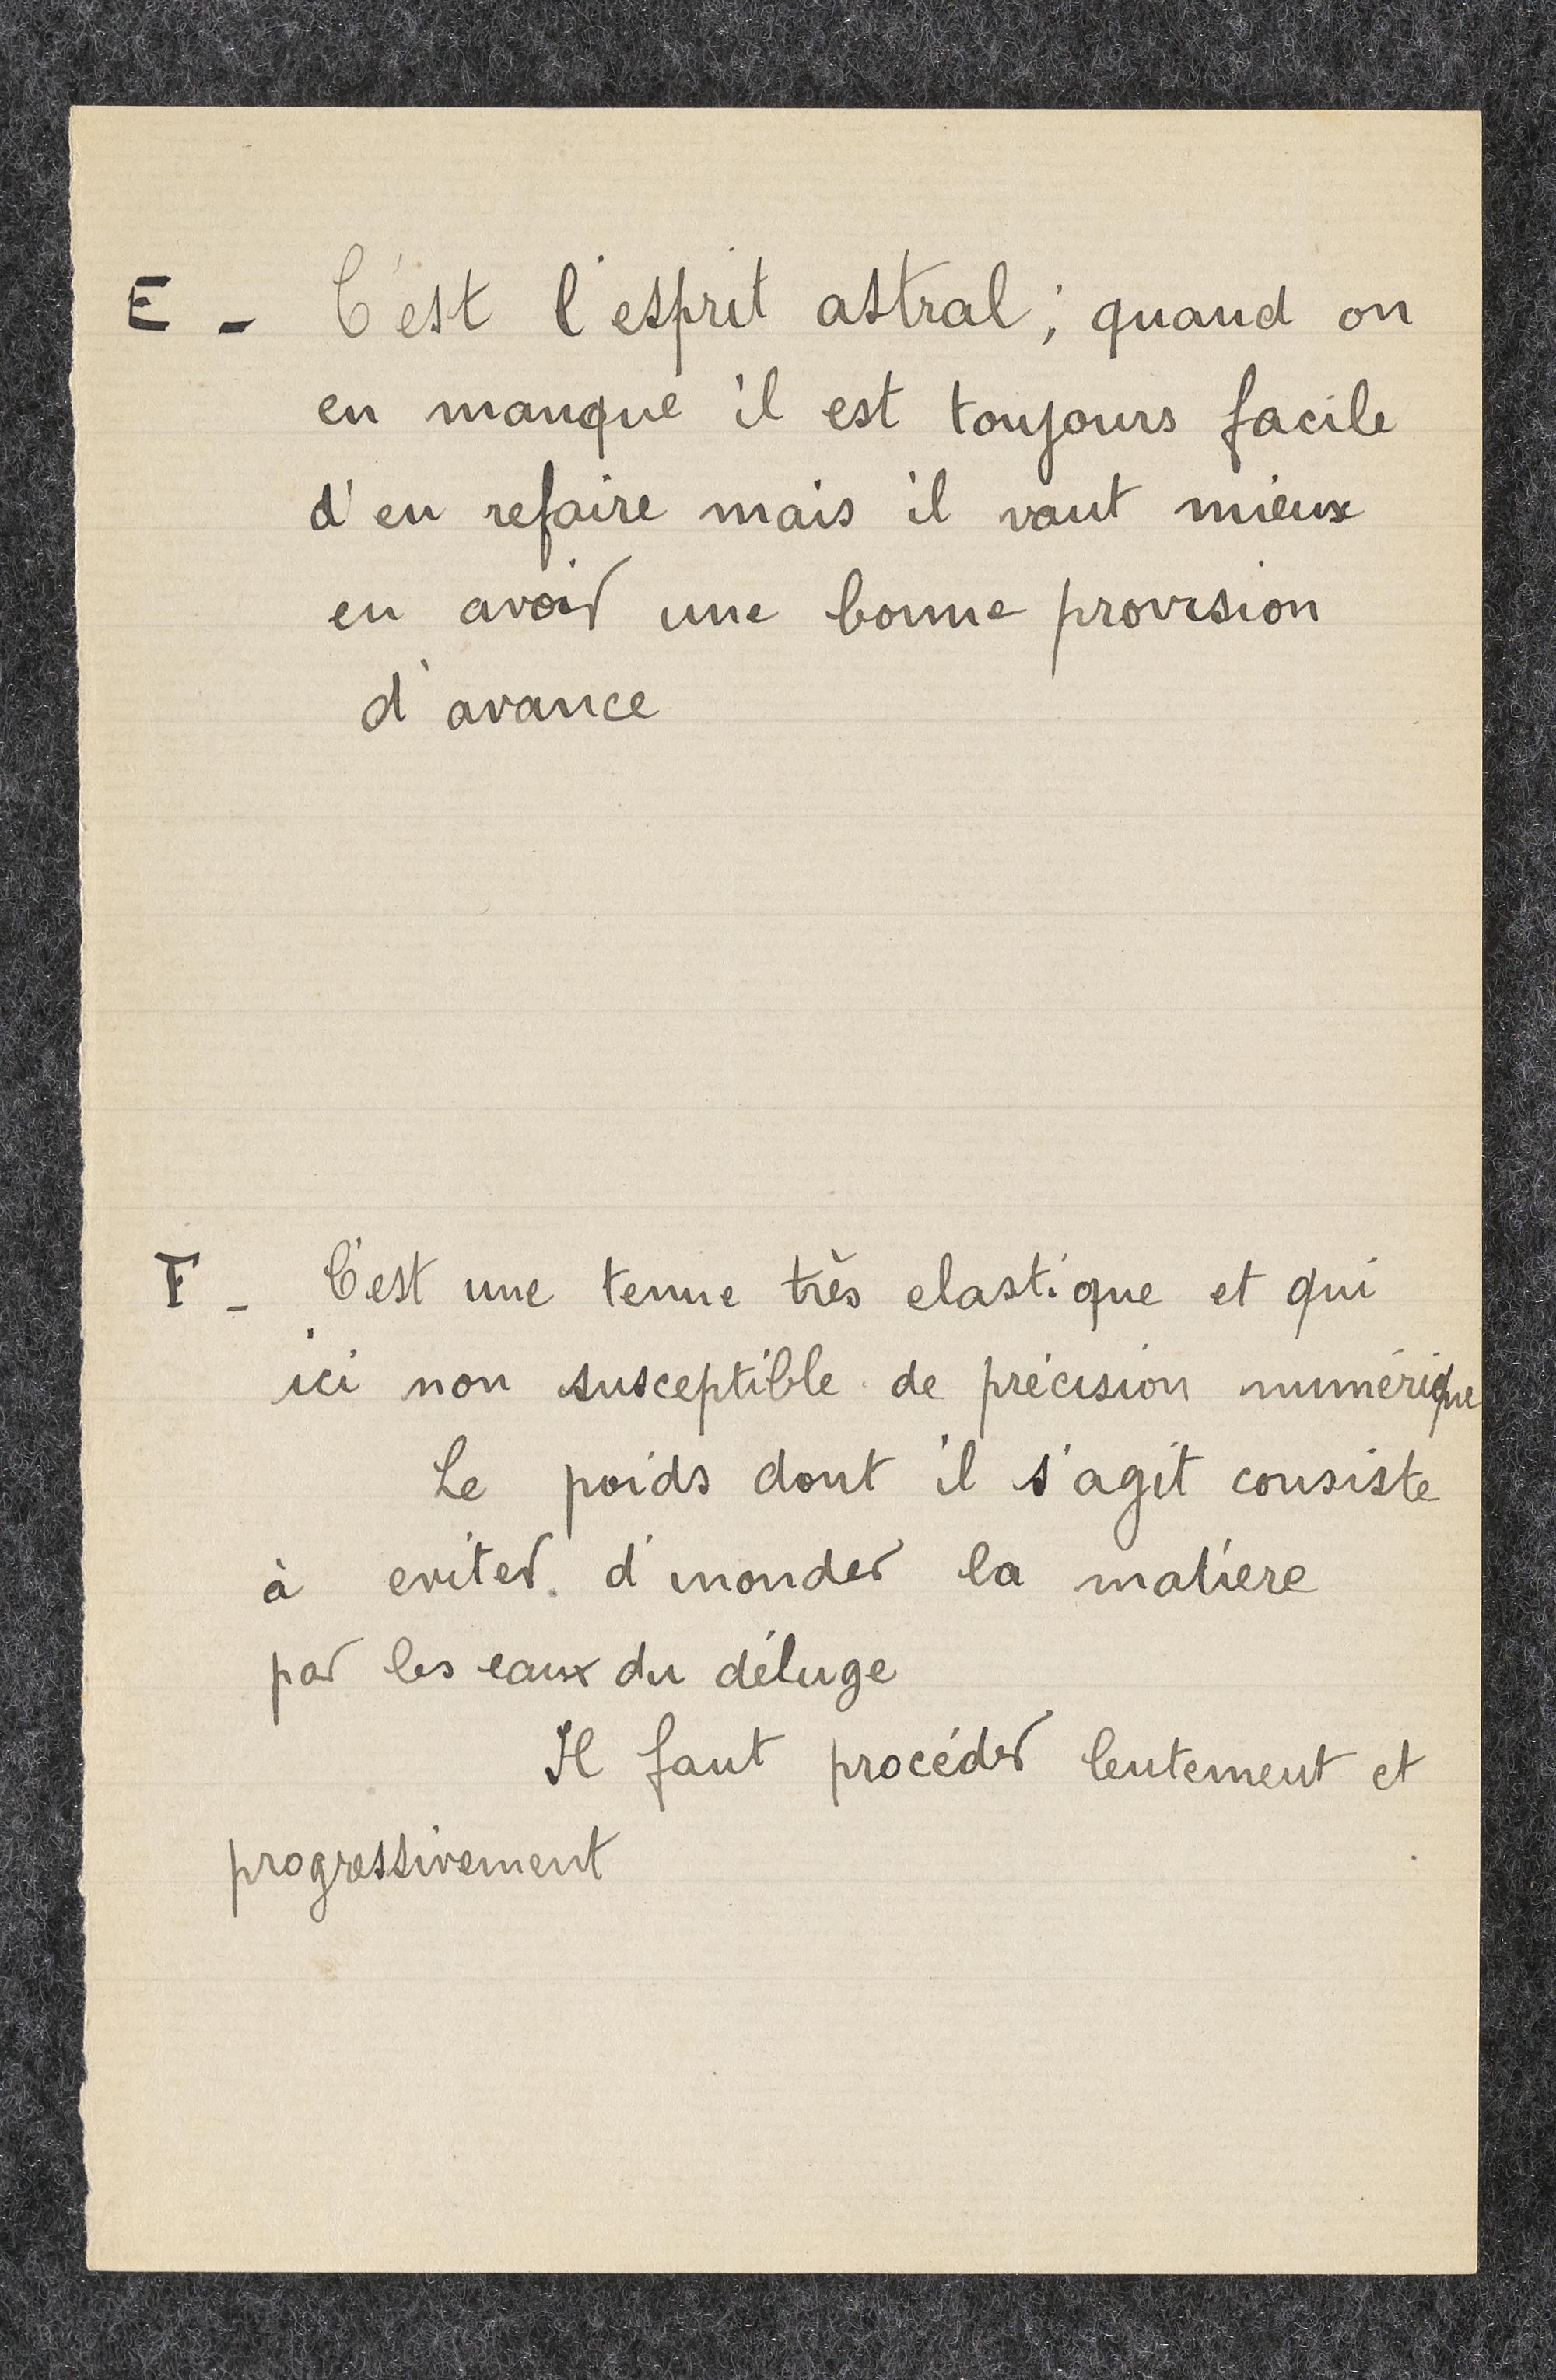 E - C'est l'esprit astral; quand on
en manque il est toujours facile
d'en refaire mais il vaut mieux
en avoir une bonne provision
d'avance
F - C'est une tenue très elastique et qui
ici non susceptible de précision numérique
Le poids dont il s'agit consiste
à eviter d'inonder la matiere
par les eaux du déluge
Il faut procéder lentement et
progressivement